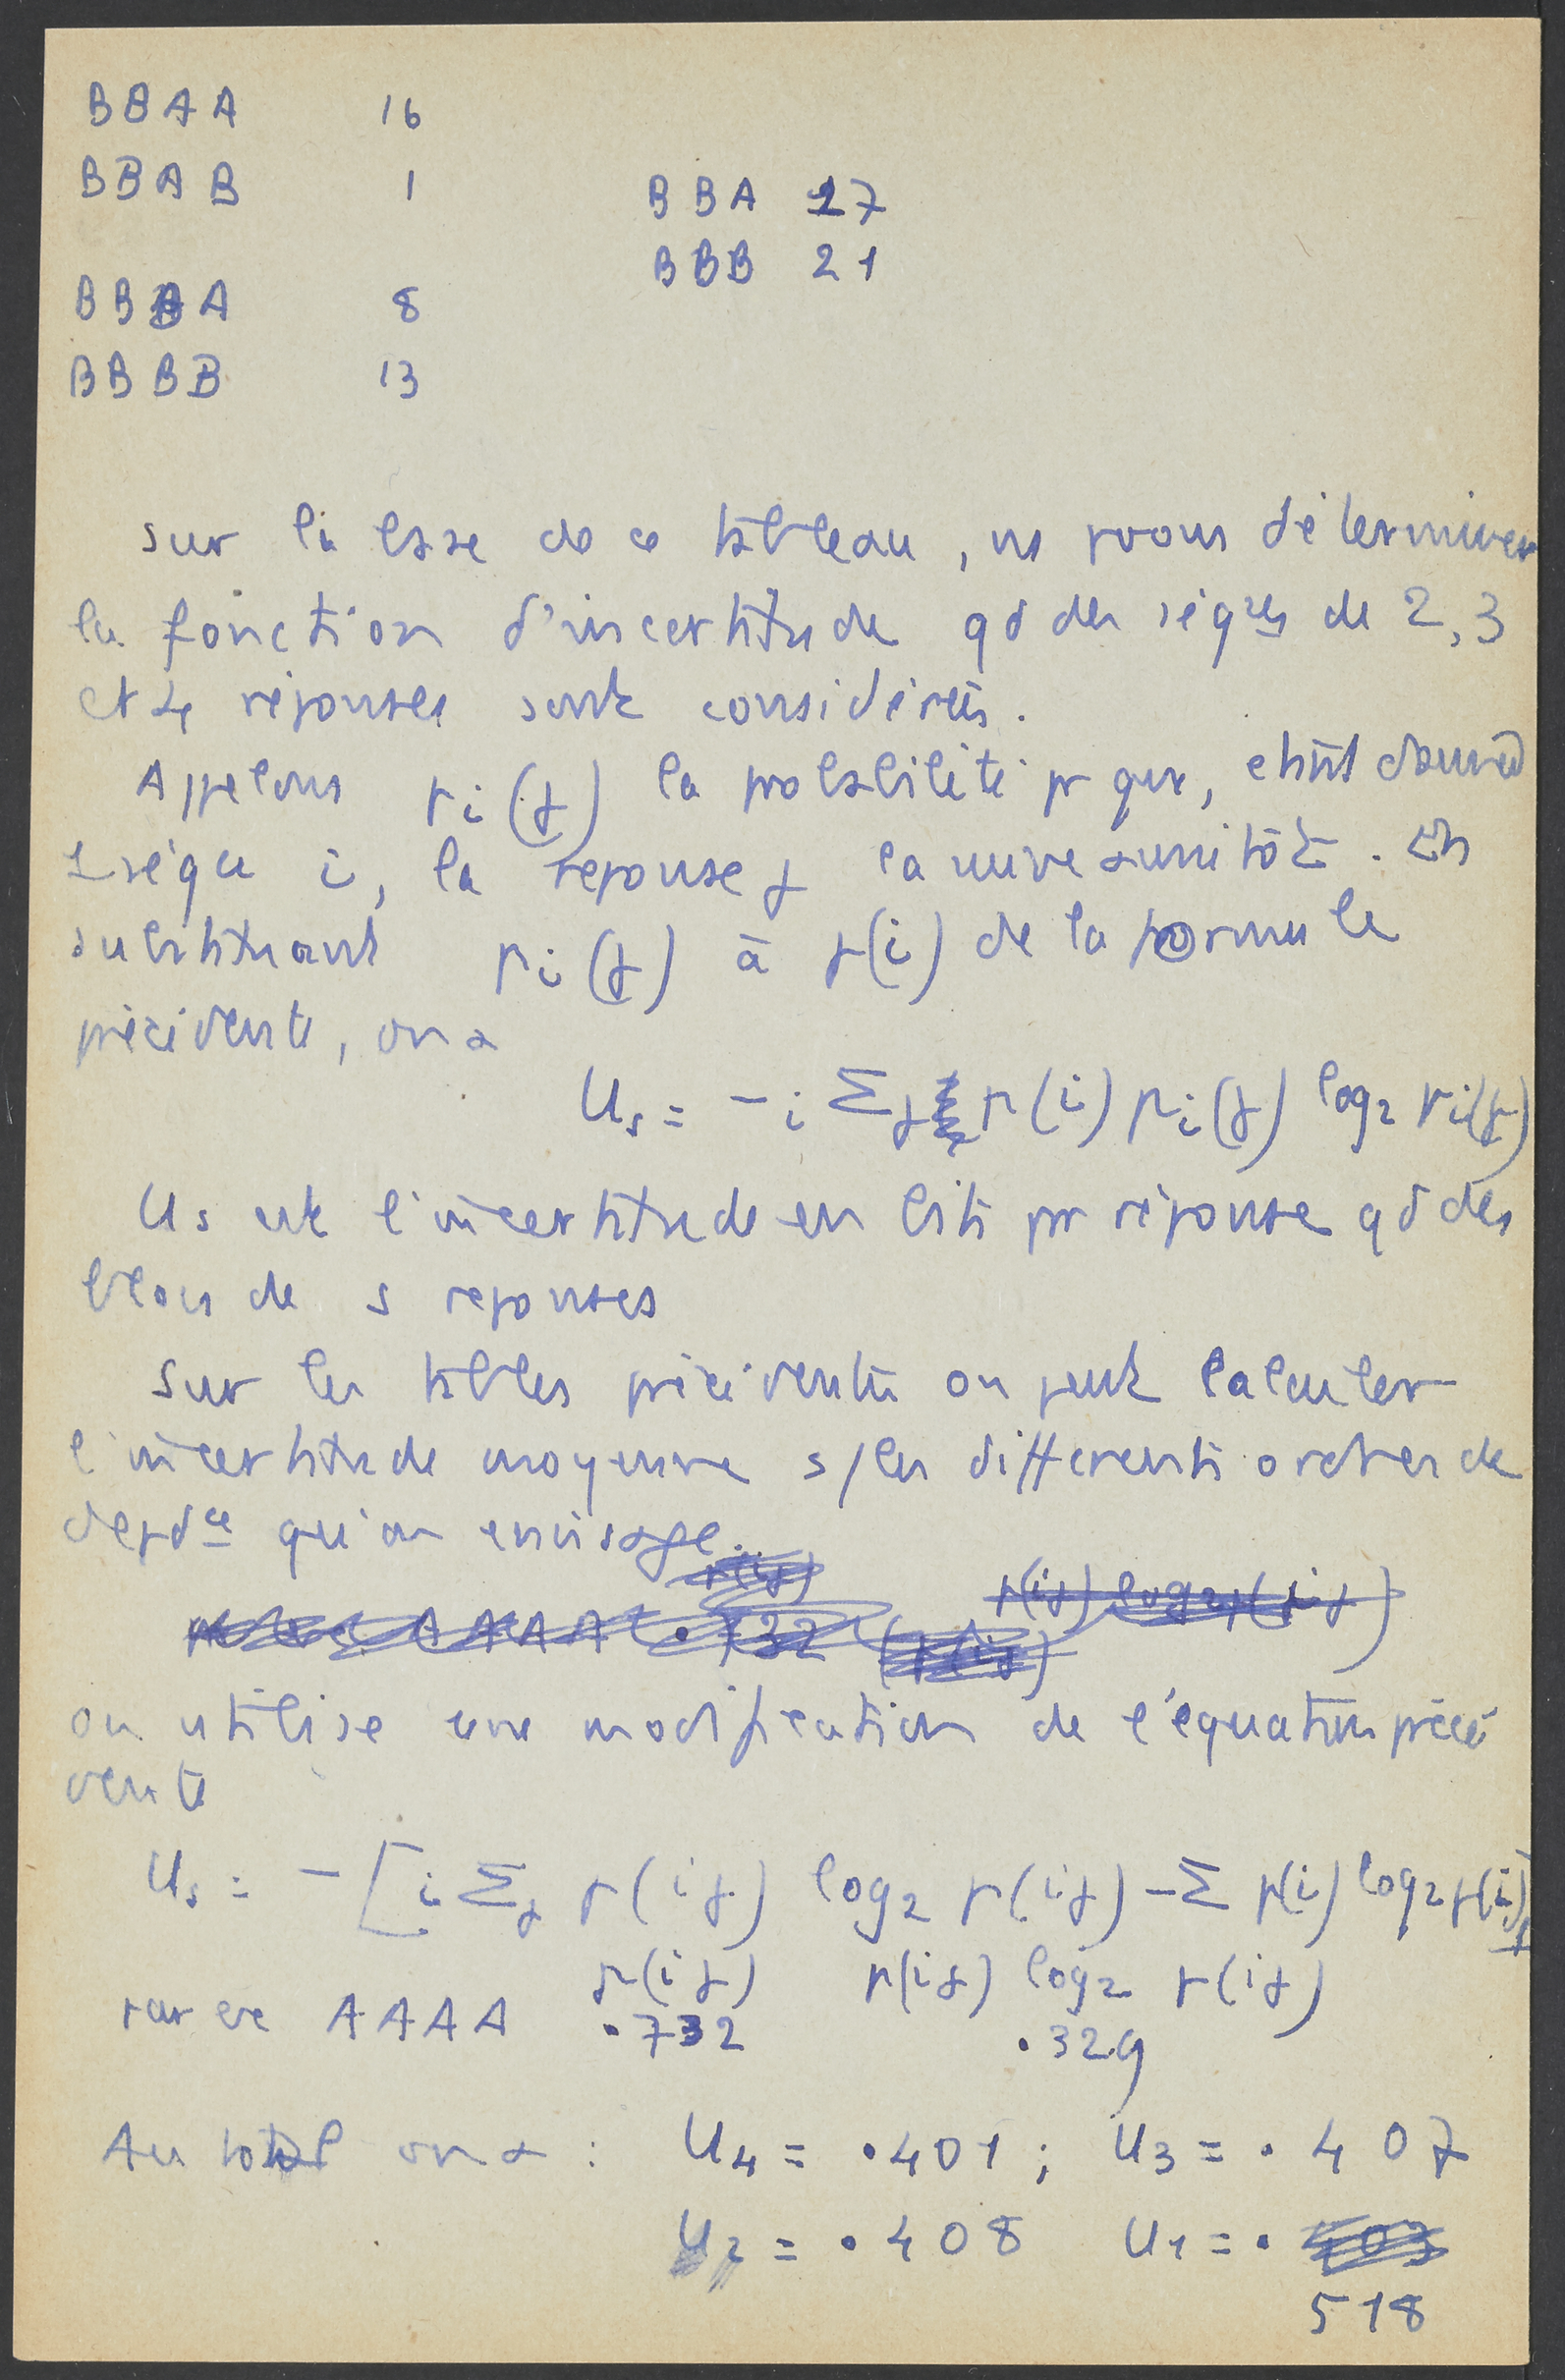 BBAA 16
BBAB 1
BBA 17
BBB 21
BBBA 8
BBBB 13
sur la base de ce tableau, ns pvons déterminer
la fonction d'incertitude qd des séqces de 2, 3
et 4 réponses sont considérées.
Appelons pi(j) la probabilité pr que, étant donnée
1 séqce i, la réponse j la suive aussitôt. En
substituant pi(j) à p(i) de la formule
précédente, on a
Us = - i Σj p(i) pi(j) log2 pi(j)
Us est l'incertitude en bits pr réponse qd des
blocs de s réponses
Sur les tables précédentes on peut calculer
l'incertitude moyenne s/ les différents ordres de
depdce qu'on envisage.
on utilise une modification de l'équation précé
dente
Us = - [i Σj p(ij) log2 p(ij) - Σ p(i) log2 p(i)]
p(ij) p(ij) log2 p(ij)
par ex AAAA .732 .329
Au total on a : U4 = .401 ; U3 = .407
U2 = .408 U1 = .
518